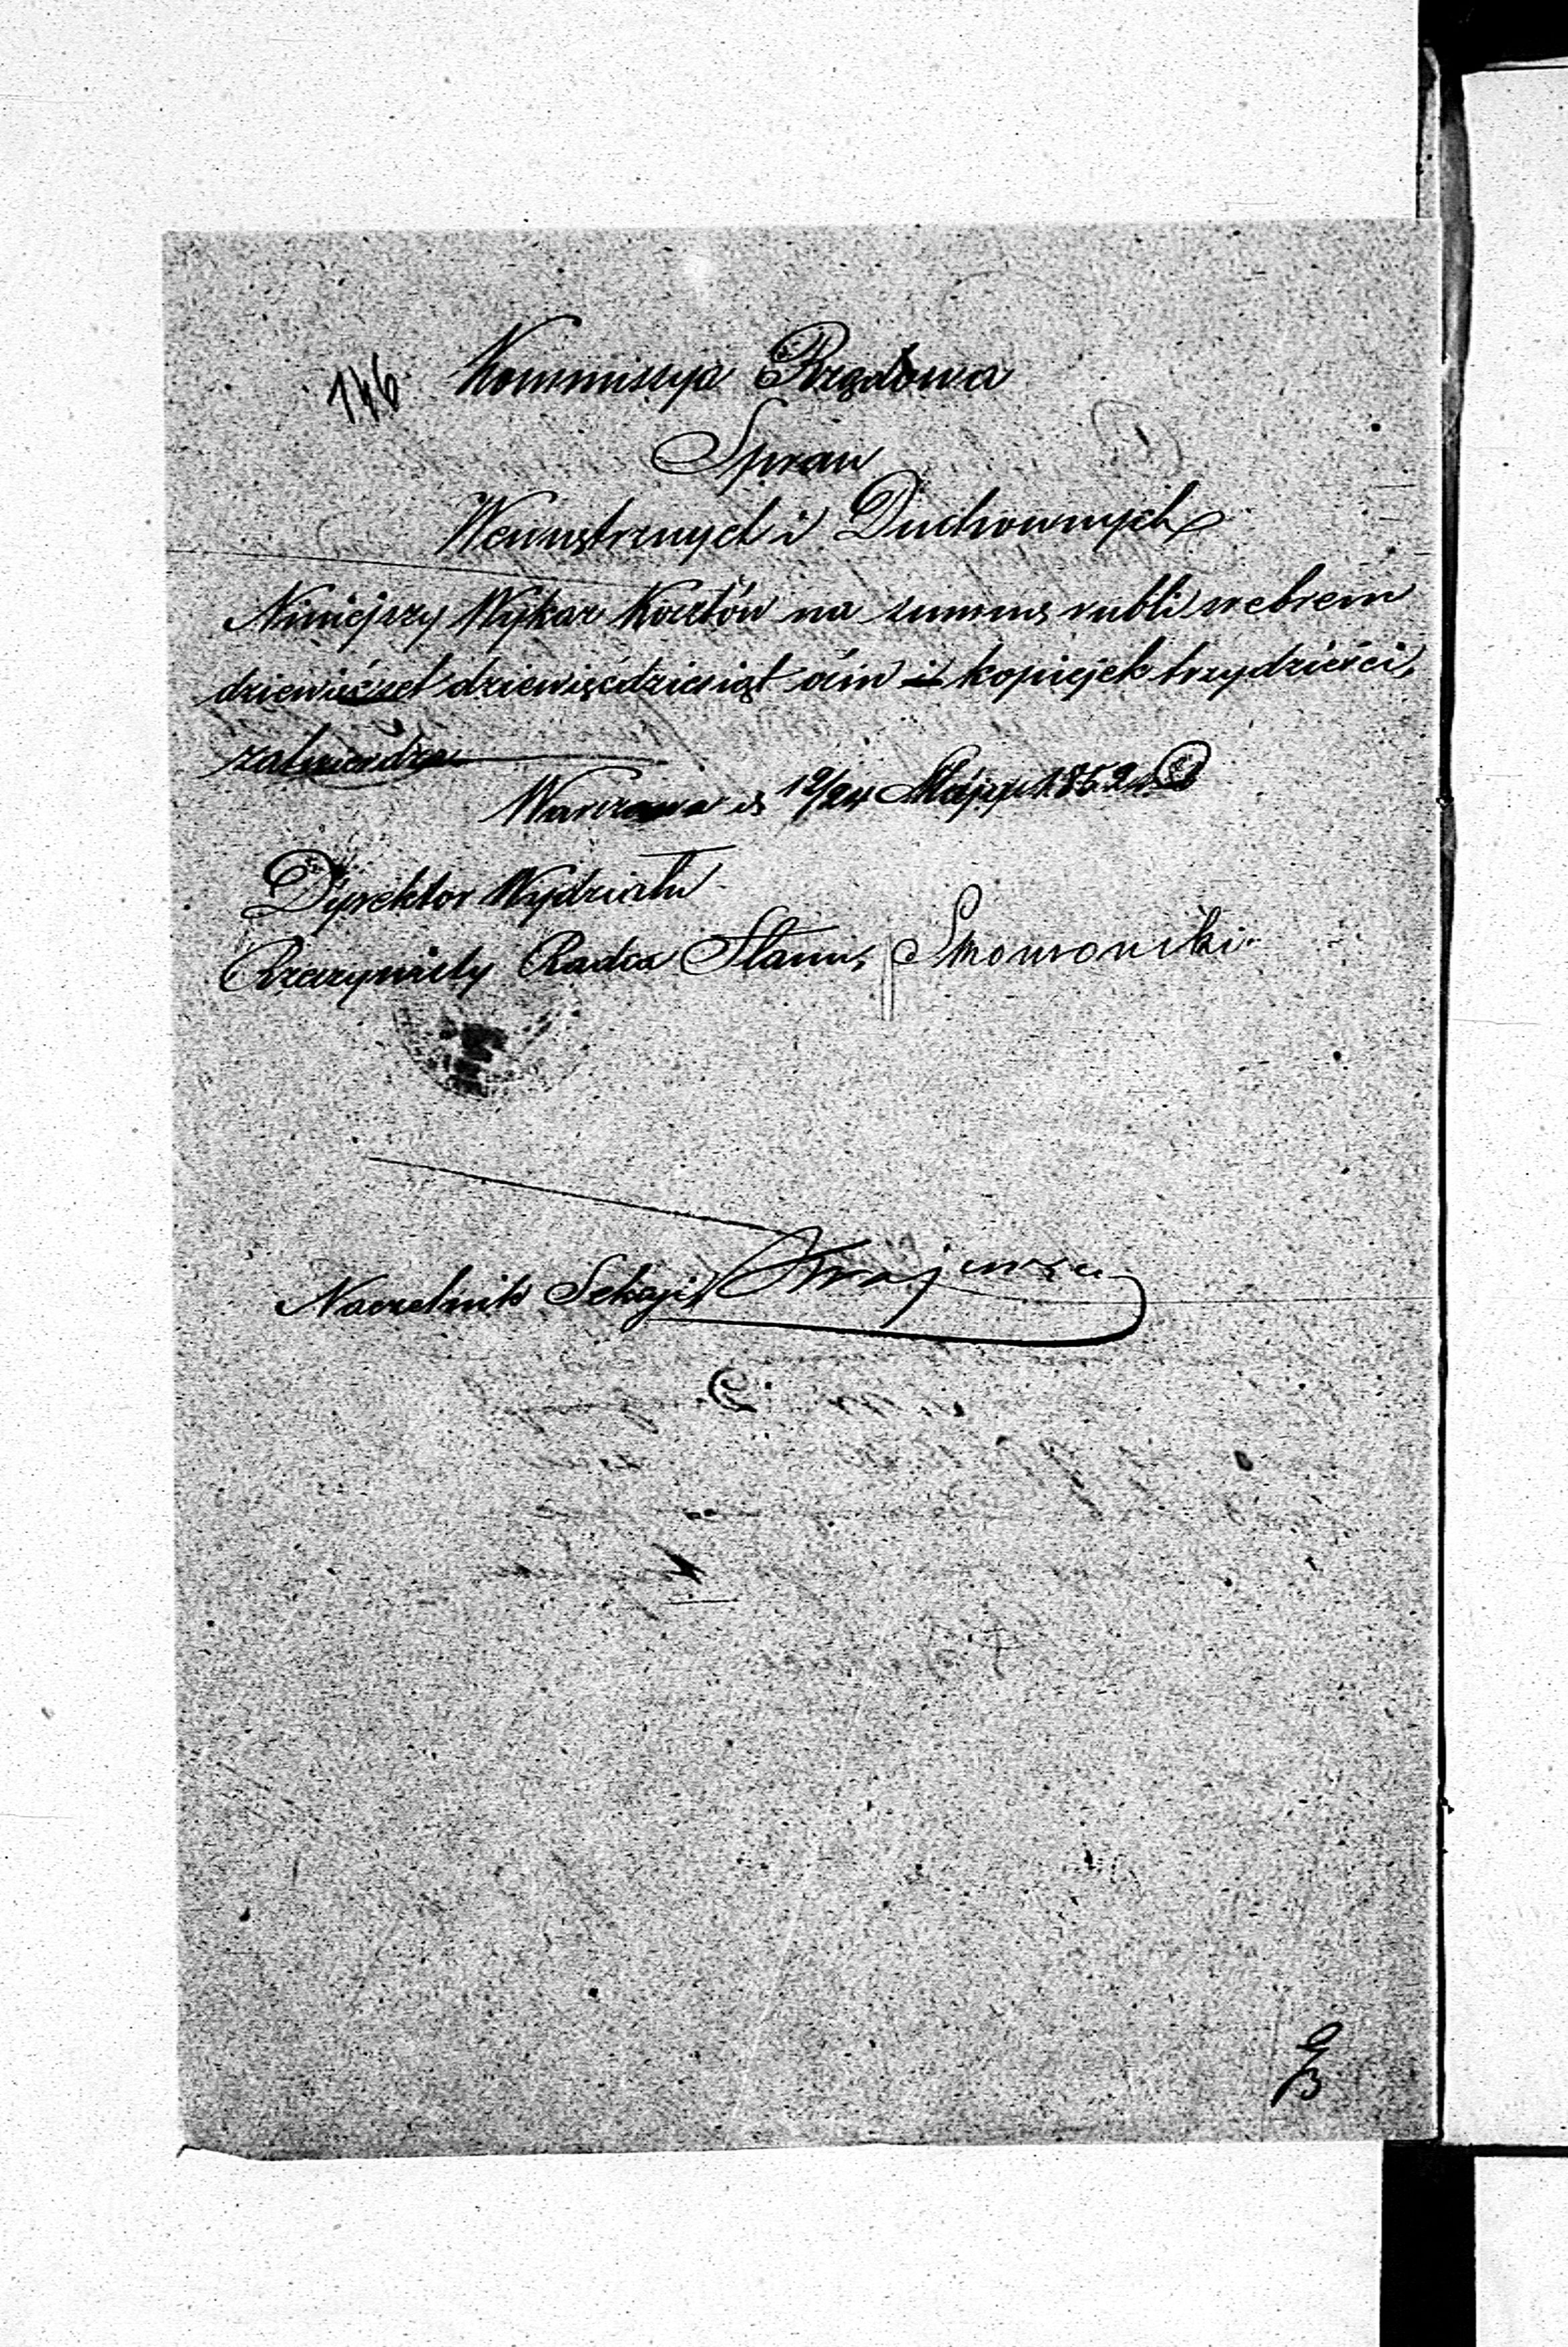 146.
Kommissyja Rządowa
Spraw
Wewnętrznych i Duchownych
Niniejszy Wykaz Kosztów na summę rubli srebrem
dziewięćset dziewięćdziesiąt ośm i kopiejek trzydzieści,
zatwierdza
Warszawa d. 12/24 Maja 1852 r.
Dyrektor Wydziału
Rzeczywisty Radca Stanu, Skowroński
Naczelnik Sekcyi Krajewski